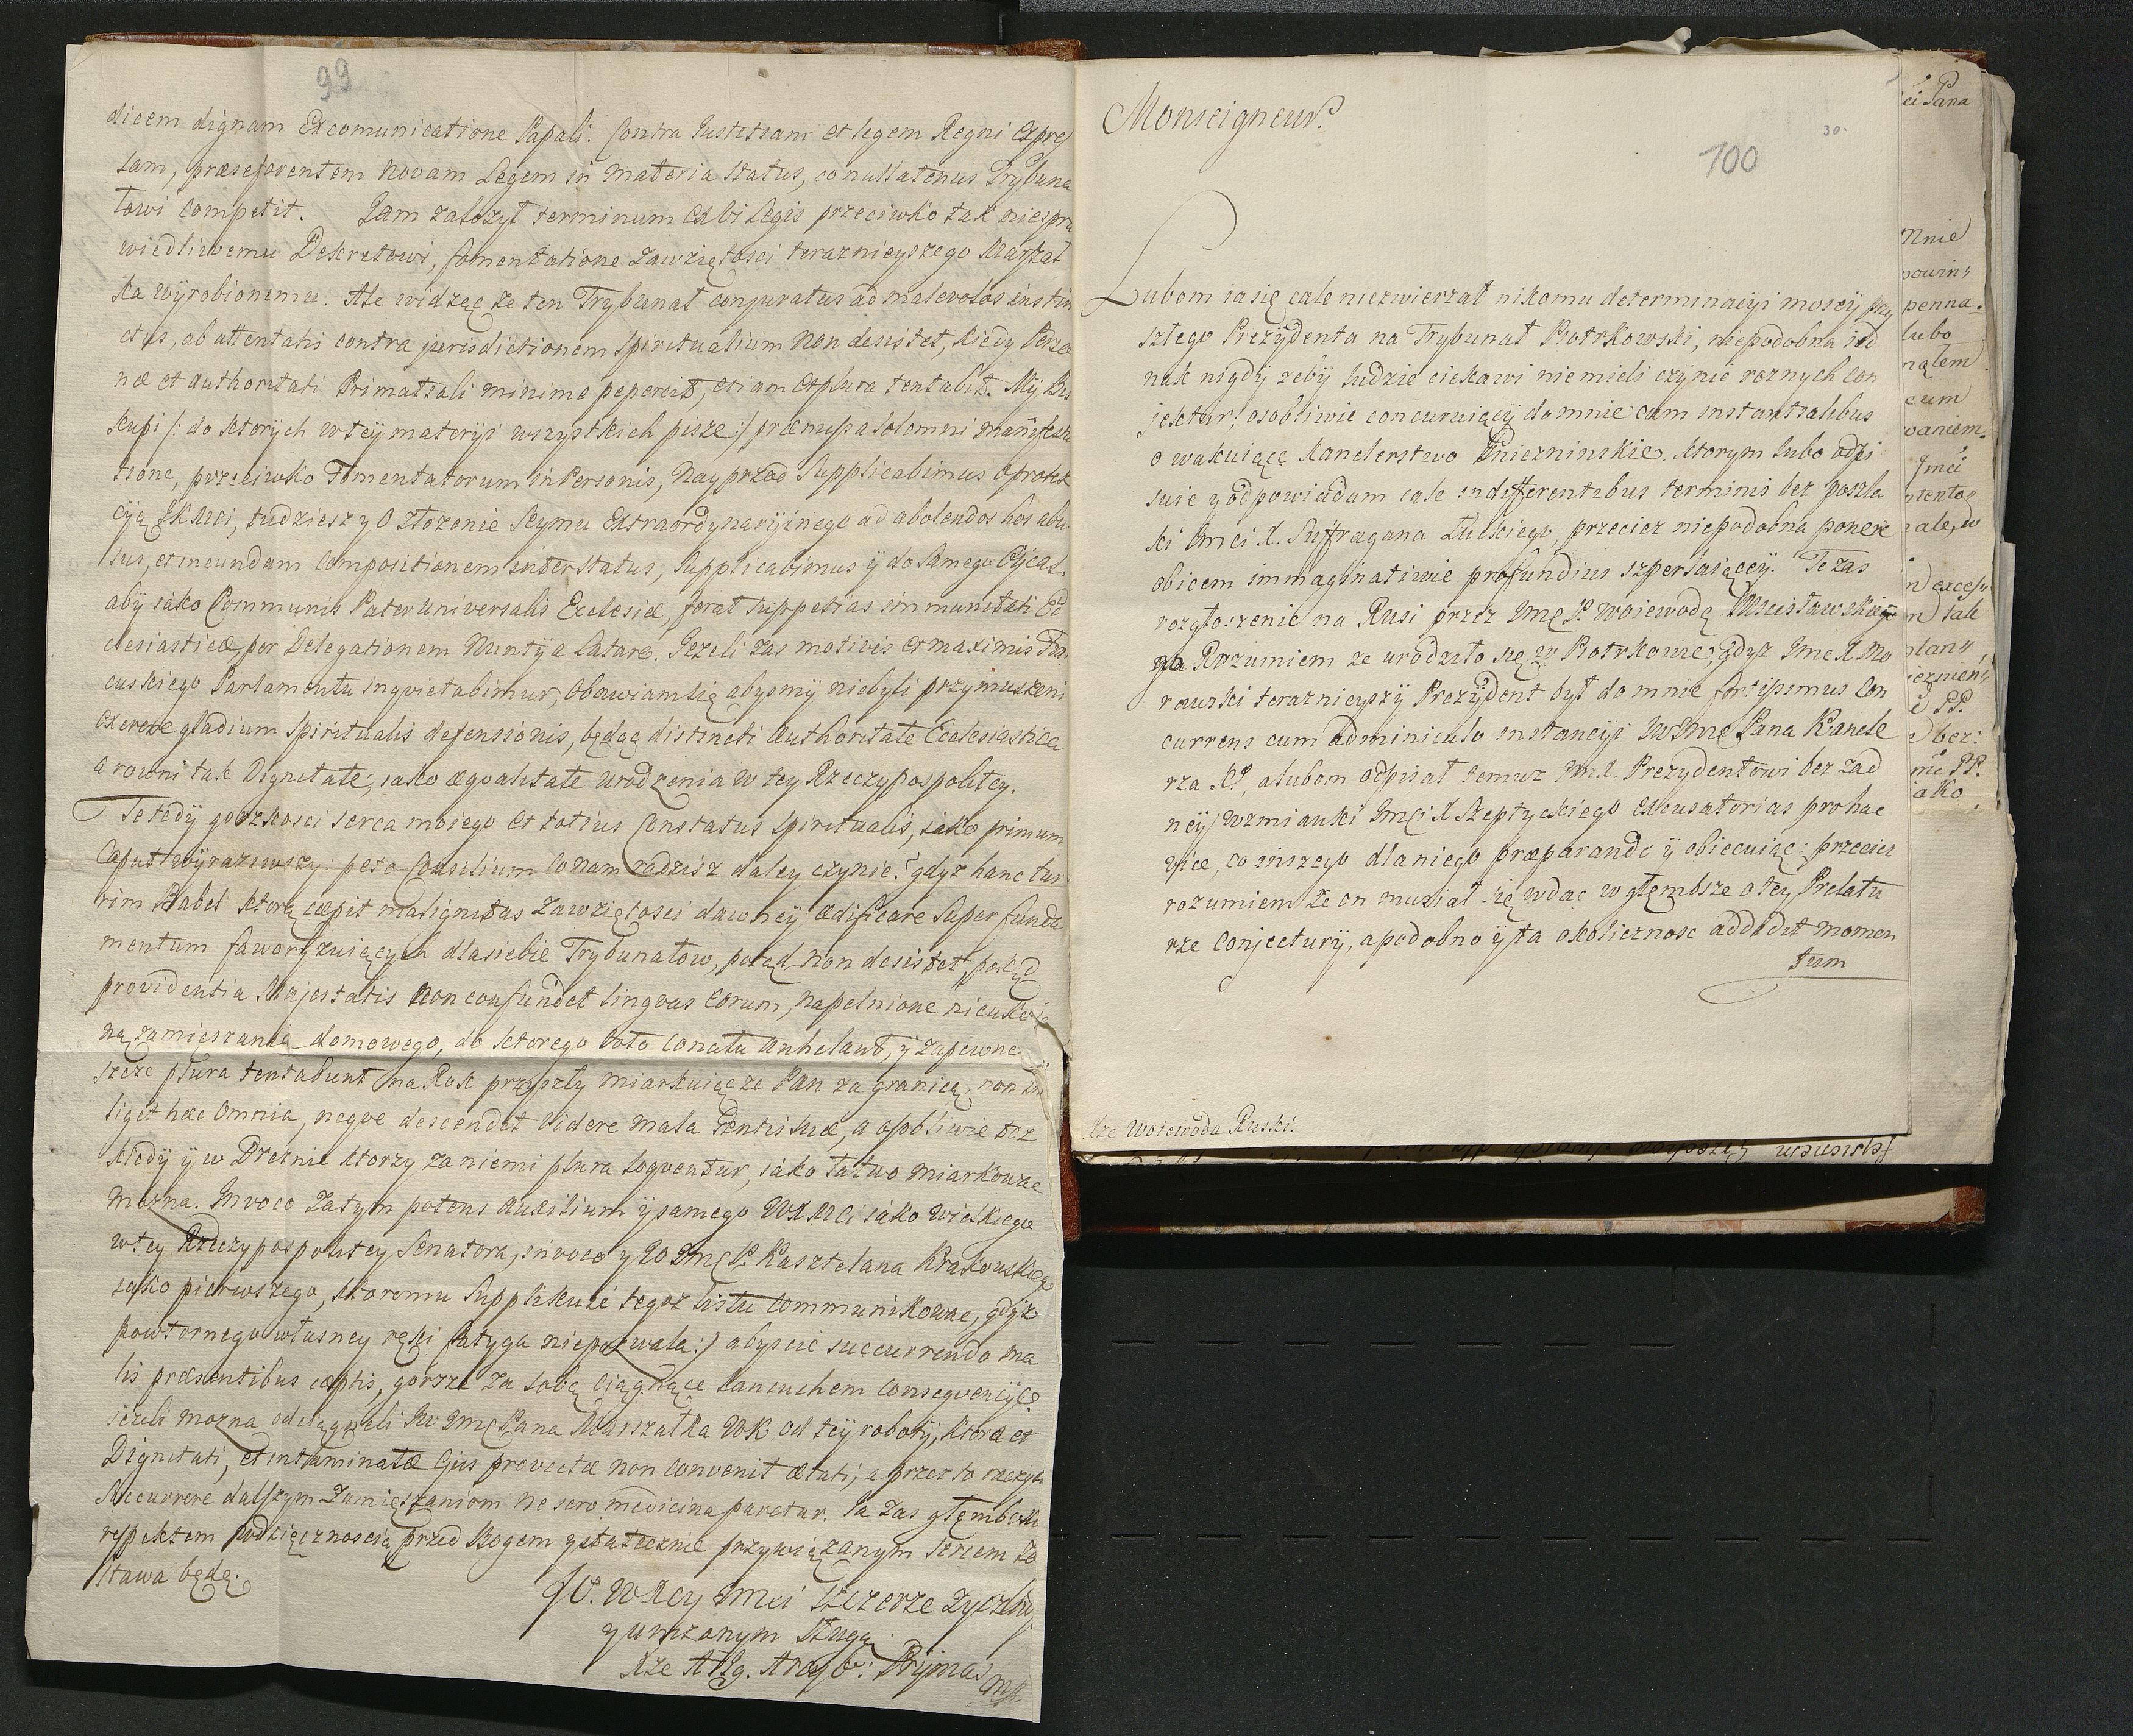 99
dicem dignam Excomunicatione Papali. Contra Justitiam et legem Regni expres
sam, præseferentem novam Legem in materia status, co nullatenus Trybuna
łowi competit. Jam założył terminum ex vi Legis przeciwko tak niespra
wiedliwemu Dekretowi, fomentatione zawziętosci teraznieyszego Marszał
ka wyrobionemu. Ale widząc ze ten Trybunał conjuratus ad malevolos instin
ctus, ab attentatis contra jurisdictionem Spiritualium non desistet, kiedy Perso
næ et authoritati Primatiali minime pepercit, etiam et plura tentabit. My Bis
kupi /: do ktorych w tey materyi wszystkich pisze :/ præmissa solemni manifesta
tione, przeciwko Fomentatorum in Personis, nayprzod supplicabimus o protek
cyą JKMci, tudziesz y o złozenie Seymu extraordynaryinego ad abolendos hos abu
sus, et ineundam compositionem inter status, supplicabimus y do samego Oyca S.
aby iako Communis Pater Universalis Ecclesiæ, ferat suppetias immunitati Ec
clesiasticæ, per Delegationem Nuntij a Latere. Jezeli zas motivis et maximis Fran
cuskiego Parlamentu inqvietabimur, obawiam się abysmy niebyli przymuszeni
exerere gladium Spiritualis defensionis, będąc distincti authoritate Ecclesiastica
a rowni tak Dignitate, iako æqvalitate urodzenia w tey Rzeczypospolitey.
Te tedy gorzkosci serca moiego et totius Constatus Spiritualis, iako primum
Caput wyraziwszy: peto Consilium co nam radzisz daley czynic? gdyz hanc tur
rim Babel ktorą cæpit malignitas zawziętosci dawney ædificare super funda
mentum faworyzuiących dla siebie Trybunałow, potąd non desistet, pokąd
providentia Majestatis non confundet lingvas eorum, napełnione
zamięszania domowego, do ktorego toto conatu anhelant, y zapewne
szcze plura tentabunt na Rok przyszły miarkuiąc ze Pan za granicą, non
liget hæc omnia, neqve descendet videre mala Gentis suæ, a osobliwie
kiedy y w Dreznie ktorzy za niemi plura loqventur, iako łatwo miarkowac
mozna. Invoco zatym potens auxilium y samego WXMci iako wielkiego
w tey Rzeczypospolitey Senatora, invoco y JO Jmc P. Kasztelana Krakowskiego
iako pierwszego, ktoremu supplikuie tegoz listu communikowac, gdyz
powtornego własney ręki fatyga niepozwala :/ abyscie succurrendo ma
lis præsentibus cæptis, gorsze za sobą ciągnące łancuchem conseqvencye
iezeli mozna odciągneli JW Jmc Pana Marszałka WK od tey roboty, ktora et
Dignitati, et intaminatæ Ejus provectæ non convenit ætati, a przez to raczyli
succurrere dalszym zamięszaniom ne sero medicina paretur. Ja zas głęmbokim
respektem y wdzięcznoscią przed Bogem y statecznie przywiązanym sercem zo
stawa będę.
JO. WXcy Jmci szczerze zyczliwym
y unizonym sługą
Xze ABg. Arcyb: Prymas mp.
Monseigneur.
30.
100
Lubom ia się cale niezwierzał nikomu determinacyi moiey przy
szłego Prezydenta na Trybunał Piotrkowski, niepodobna ied
nak nigdy zeby ludzie ciekawi niemieli czynic roznych con
jektur, osobliwie concuruiący do mnie cum instantialibus
o wakuiące Kanclerstwo Gnieznienskie. ktorym lubo odpi
suie y odpowiadam cale indifferentibus terminis bez poszla
ki Jmci X. Suffragana Łuckiego, przeciez niepodobna ponere
obicem immaginatiwie profundius szperaiącey. Te zas
rozgłoszenie na Rusi przez Jmc P. Woiewodę Mscisławskiego
Rozumiem ze urodziło się w Piotrkowie, gdyz Jmc X Mo
rawski teraznieyszy Prezydent był do mnie fortissimus con
currens cum adminiculo instancyi JWJmc Pana Kancle
rza K, a lubom odpisał temuz Jmc X. Prezydentowi bez zad
ney wzmianki Jmci X Szeptyckiego excusatorias pro hac
vice, co inszego dla niego præparando y obiecuiąc: przeciez
rozumiem ze on musiał się wdac w głęmbsze o tey Prelatu
rze conjectury, a podobno y ta okolicznosc addidit momen
tum
Xze Woiewoda Ruski.
ci Pana
Mnie
powin„
penna.
lubo
nąłem
cum
waniem.
Jmci
ntento„
ale, w
n exces„
n tak
plan„
iezmien„
PP.
bez:
me PP.
iako